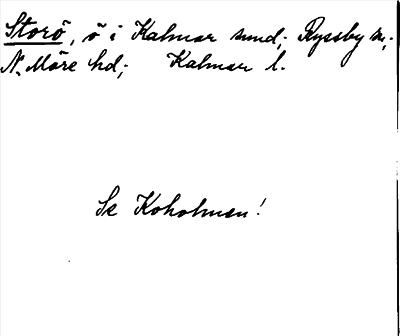 Storö, ö i Kalmar sund; Ryssby sn;
N. Möre hd; Kalmar l.
Se Koholmen!